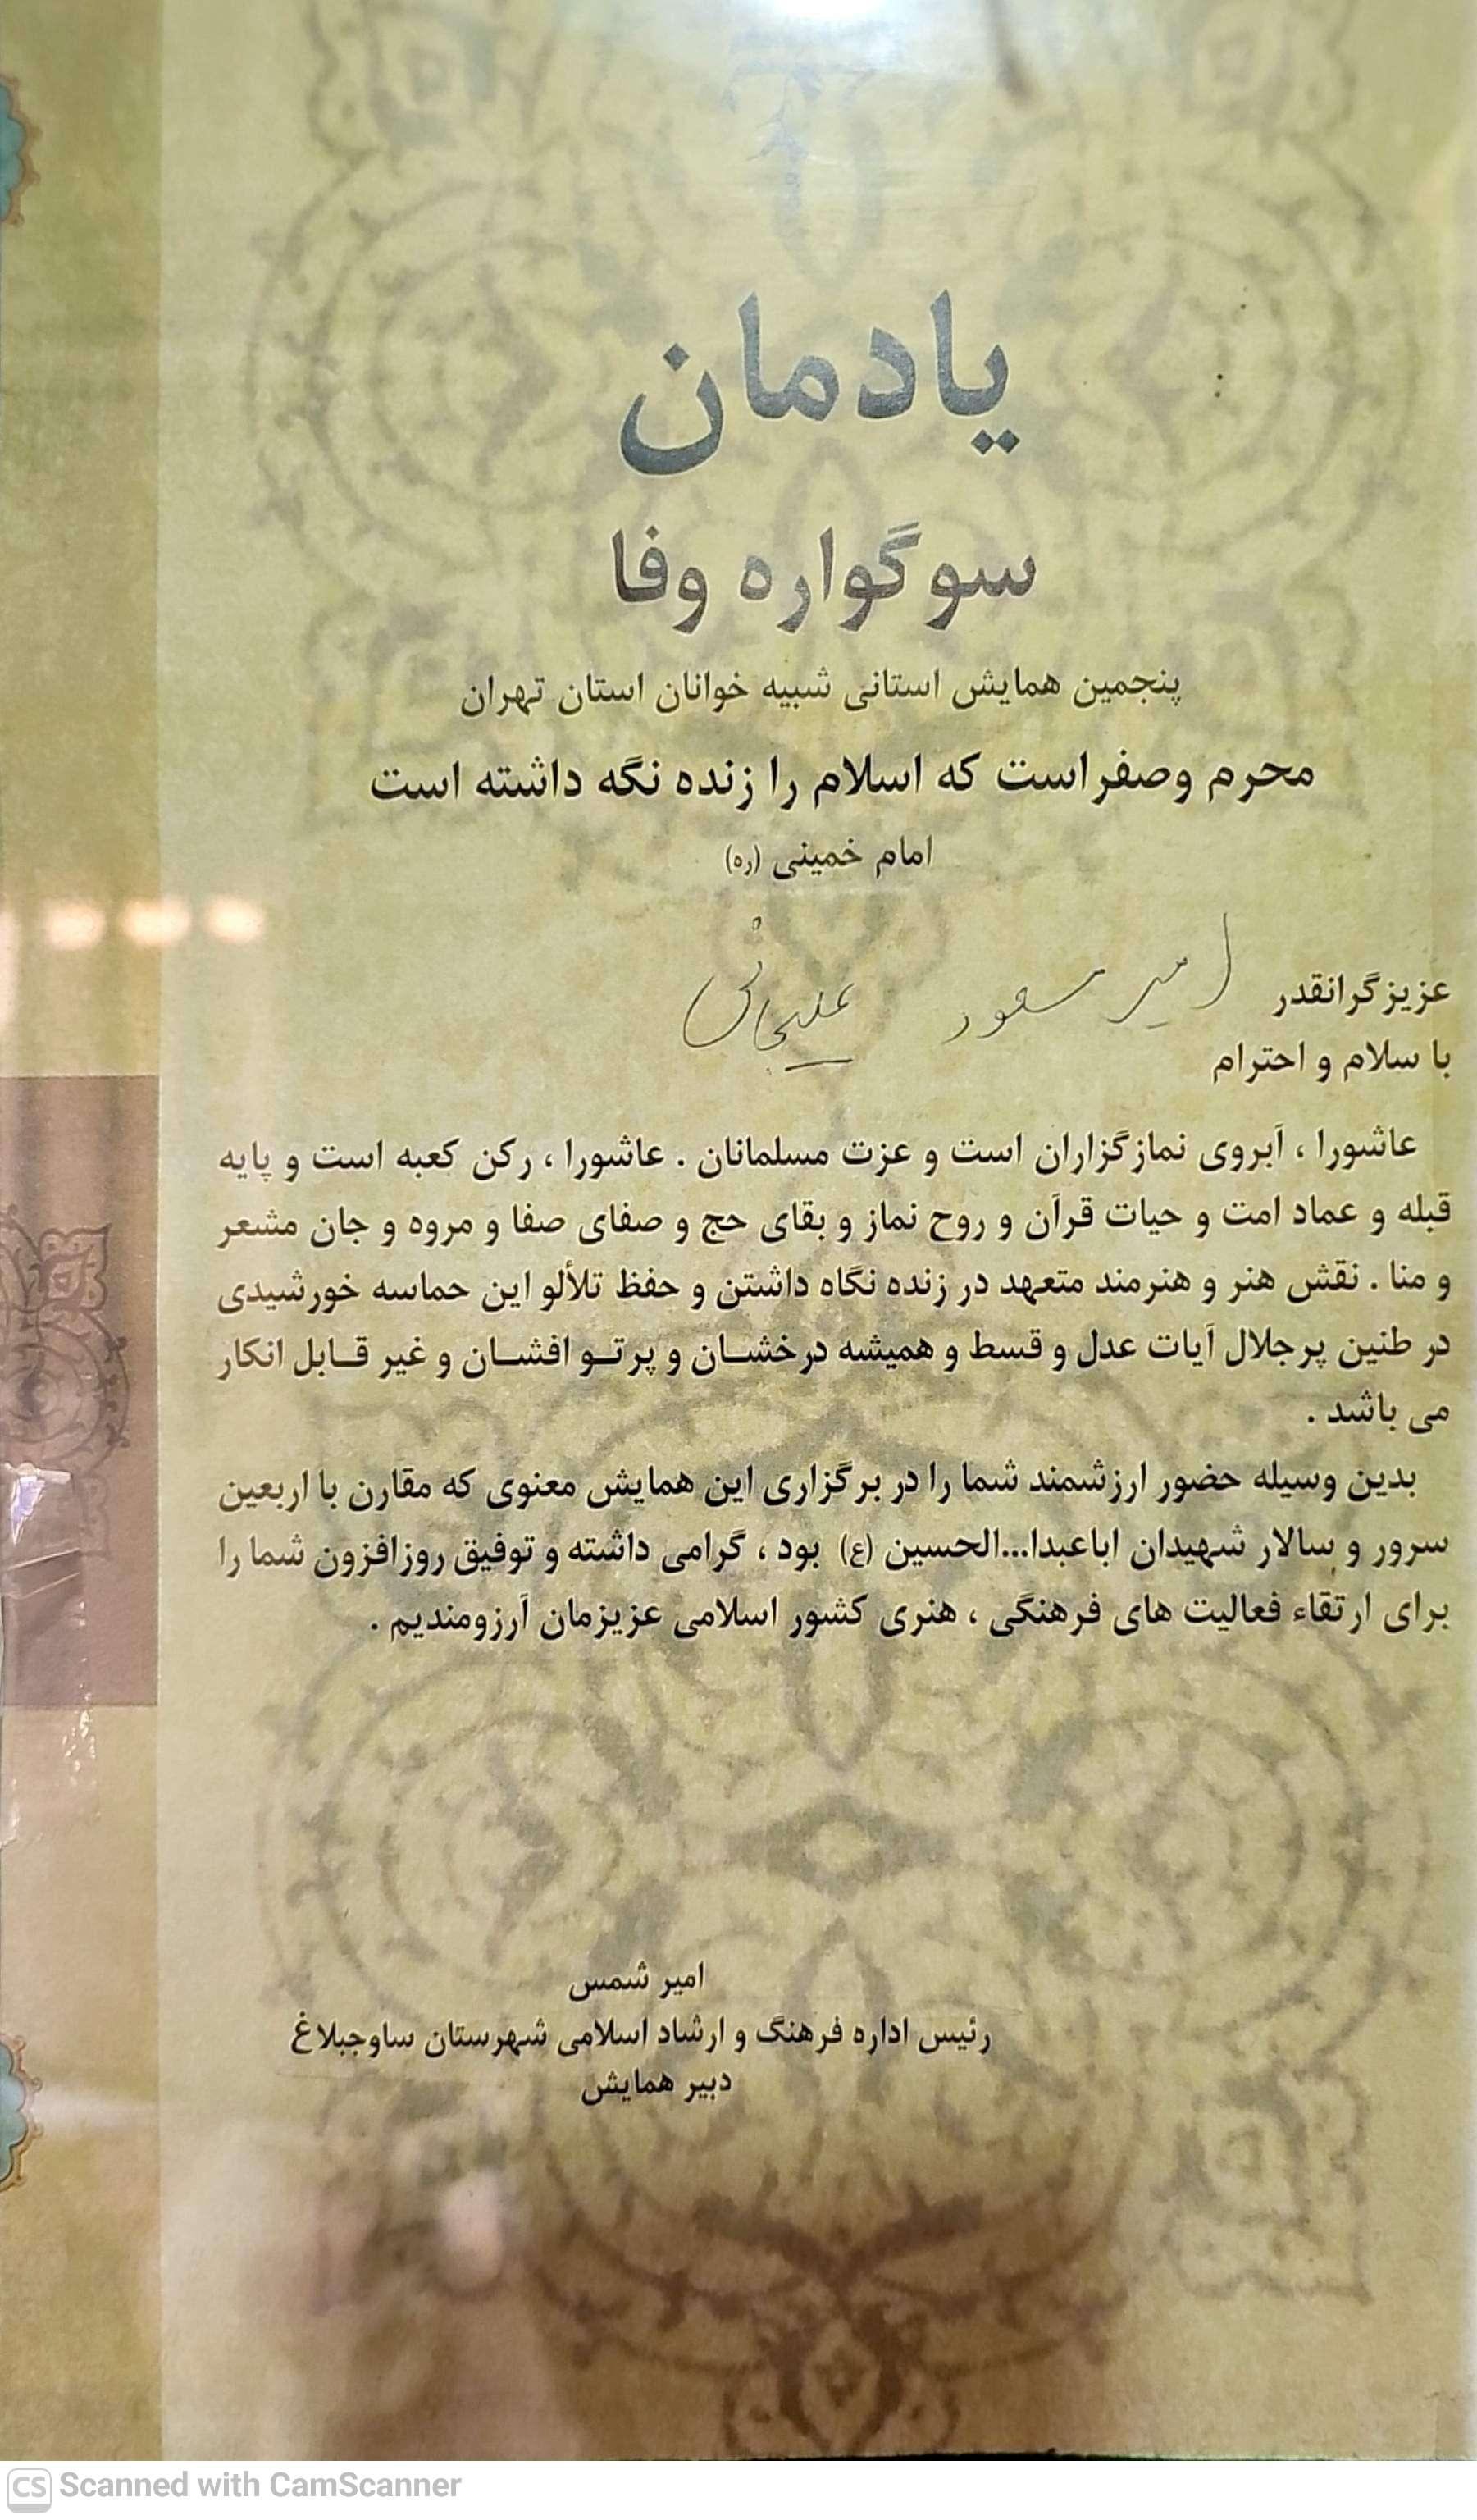 یادمان
سوگواره وفا
پنجمین همایش استانی شبیه خوانان استان تهران
محرم وصفراست که اسلام را زنده نگه داشته است
امام خمینی (ره)
عزیزگرانقدر امیر مسعود علیخانی
با سلام و احترام
عاشورا ، آبروی نمازگزاران است و عزت مسلمانان . عاشورا ، رکن کعبه است و پایه
قبله و عماد امت و حیات قرآن و روح نماز و بقای حج و صفای صفا و مروه و جان مشعر
و منا . نقش هنر و هنرمند متعهد در زنده نگاه داشتن و حفظ تلألو این حماسه خورشیدی
در طنین پرجلال آیات عدل و قسط و همیشه درخشـان و پرتـو افشـان و غیر قـابل انکار
می باشد .
بدین وسیله حضور ارزشمند شما را در برگزاری این همایش معنوی که مقارن با اربعین
سرور و سالار شهیدان اباعبدا...الحسین (ع) بود ، گرامی داشته و توفیق روزافزون شما را
برای ارتقاء فعالیت های فرهنگی ، هنری کشور اسلامی عزیزمان آرزومندیم .
امیر شمس
رئیس اداره فرهنگ و ارشاد اسلامی شهرستان ساوجبلاغ
دبیر همایش
CS Scanned with CamScanner